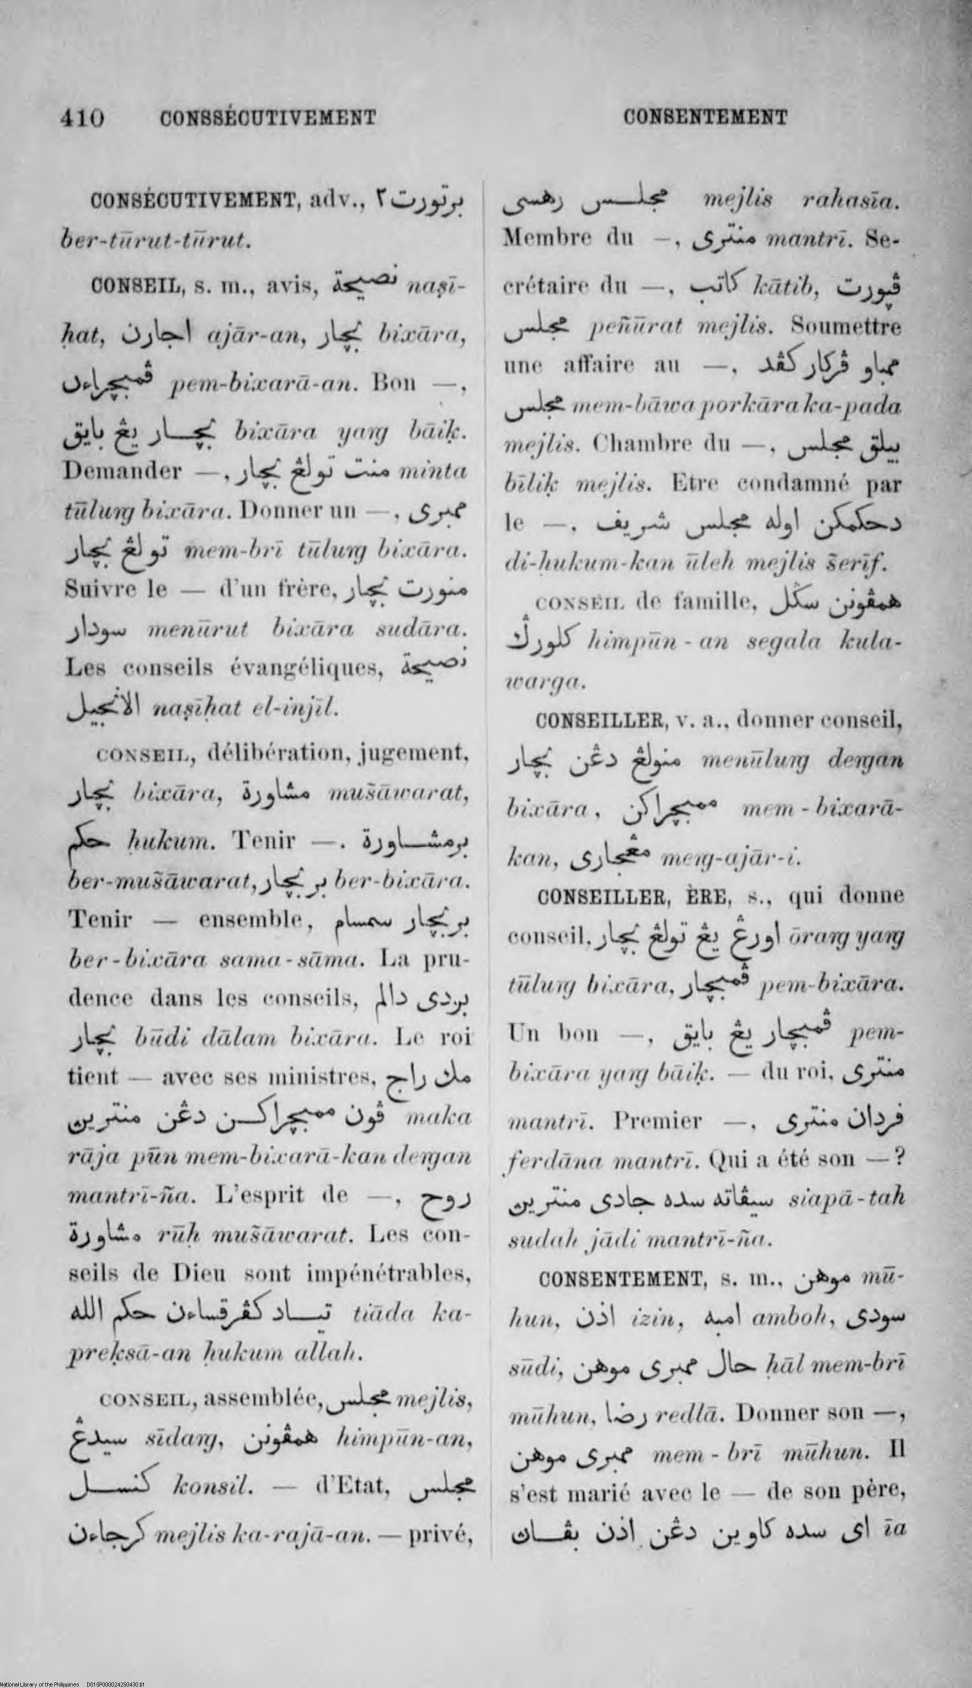 410 CONSSÉCUTIVEMENT CONSENTEMENT
CONSÉCUTIVEMENT, adv., برتورت٢
ber-tūrut-tūrut.
CONSEIL, s. m., avis, نصيحة naṣī-
ḥat, اجارن ajār-an, بچار bixāra,
ڤمبچراءن pem-bixarā-an. Bon —,
بچــار يڠ بايق bixāra yarg bāiḳ.
Demander —, منت تولڠ بچار minta
tūlurg bixāra. Donner un —, ممبرى
تولڠ بچار mem-brī tūlurg bixāra.
Suivre le — d'un frère, منورت بچار
سودار menūrut bixāra sudāra.
Les conseils évangéliques, نصيحة
الانجيل naṣīḥat el-injīl.
CONSEIL, délibération, jugement,
بچار bixāra, مشاورة mus̃āwarat,
حكم ḥukum. Tenir —, برمشــاورة
ber-mus̃āwarat, بربچار ber-bixāra.
Tenir — ensemble, بربچار سمسام
ber-bixāra sama-sāma. La pru-
dence dans les conseils, بردى دالم
بچار būdi dālam bixāra. Le roi
tient — avec ses ministres, مك راج
ڤون ممبچراكــن دڠن منترين maka
rāja pūn mem-bixarā-kan dergan
mantrī-ña. L'esprit de —, روح
مشاورة rūḥ mus̃āwarat. Les con-
seils de Dieu sont impénétrables,
تيــاد كڤرقساءن حكم الله tiāda ka-
preḳsā-an ḥukum allah.
CONSEIL, assemblée, مجلس mejlis,
سيدڠ sīdarg, همڤونن himpūn-an,
كنســل konsil. — d'Etat, مجلس
كرجاءن mejlis ka-rajā-an. — privé,
مجلــس رهسى mejlis rahasīa.
Membre du —, منترى mantrī. Se-
crétaire du —, كاتب kātib, ڤپورت
مجلس peñūrat mejlis. Soumettre
une affaire au —, ممباو ڤركار كڤد
مجلس mem-bāwa porkāra ka-pada
mejlis. Chambre du —, بيلق مجلس
bīliḳ mejlis. Etre condamné par
le —, دحكمكن اوله مجلس شريف
di-ḥukum-kan ūleh mejlis s̃erīf.
CONSEIL de famille, همڤونن سڬل
كلورڬ himpūn-an segala kula-
warga.
CONSEILLER, v. a., donner conseil,
منولڠ دڠن بچار menūlurg dergan
bixāra, ممبچراكن mem-bixarā-
kan, مڠجارى merg-ajār-i.
CONSEILLER, ÈRE, s., qui donne
conseil, اورڠ يڠ تولڠ بچار ōrarg yarg
tūlurg bixāra, ڤمبچار pem-bixāra.
Un bon —, ڤمبچار يڠ بايق pem-
bixāra yarg bāiḳ. — du roi, منترى
mantrī. Premier —, فردان منترى
ferdāna mantrī. Qui a été son —?
سيڤاته سده جادى منترين siapā-tah
sudah jādi mantrī-ña.
CONSENTEMENT, s. m., موهن mū-
hun, اذن izin, امبه amboh, سودى
sūdi, حال ممبرى موهن ḥāl mem-brī
mūhun, رضا redlā. Donner son —,
ممبرى موهن mem-brī mūhun. Il
s'est marié avec le — de son père,
اى سده كاوين دڠن اذن بڤــاك īa
National Library of the Philippines